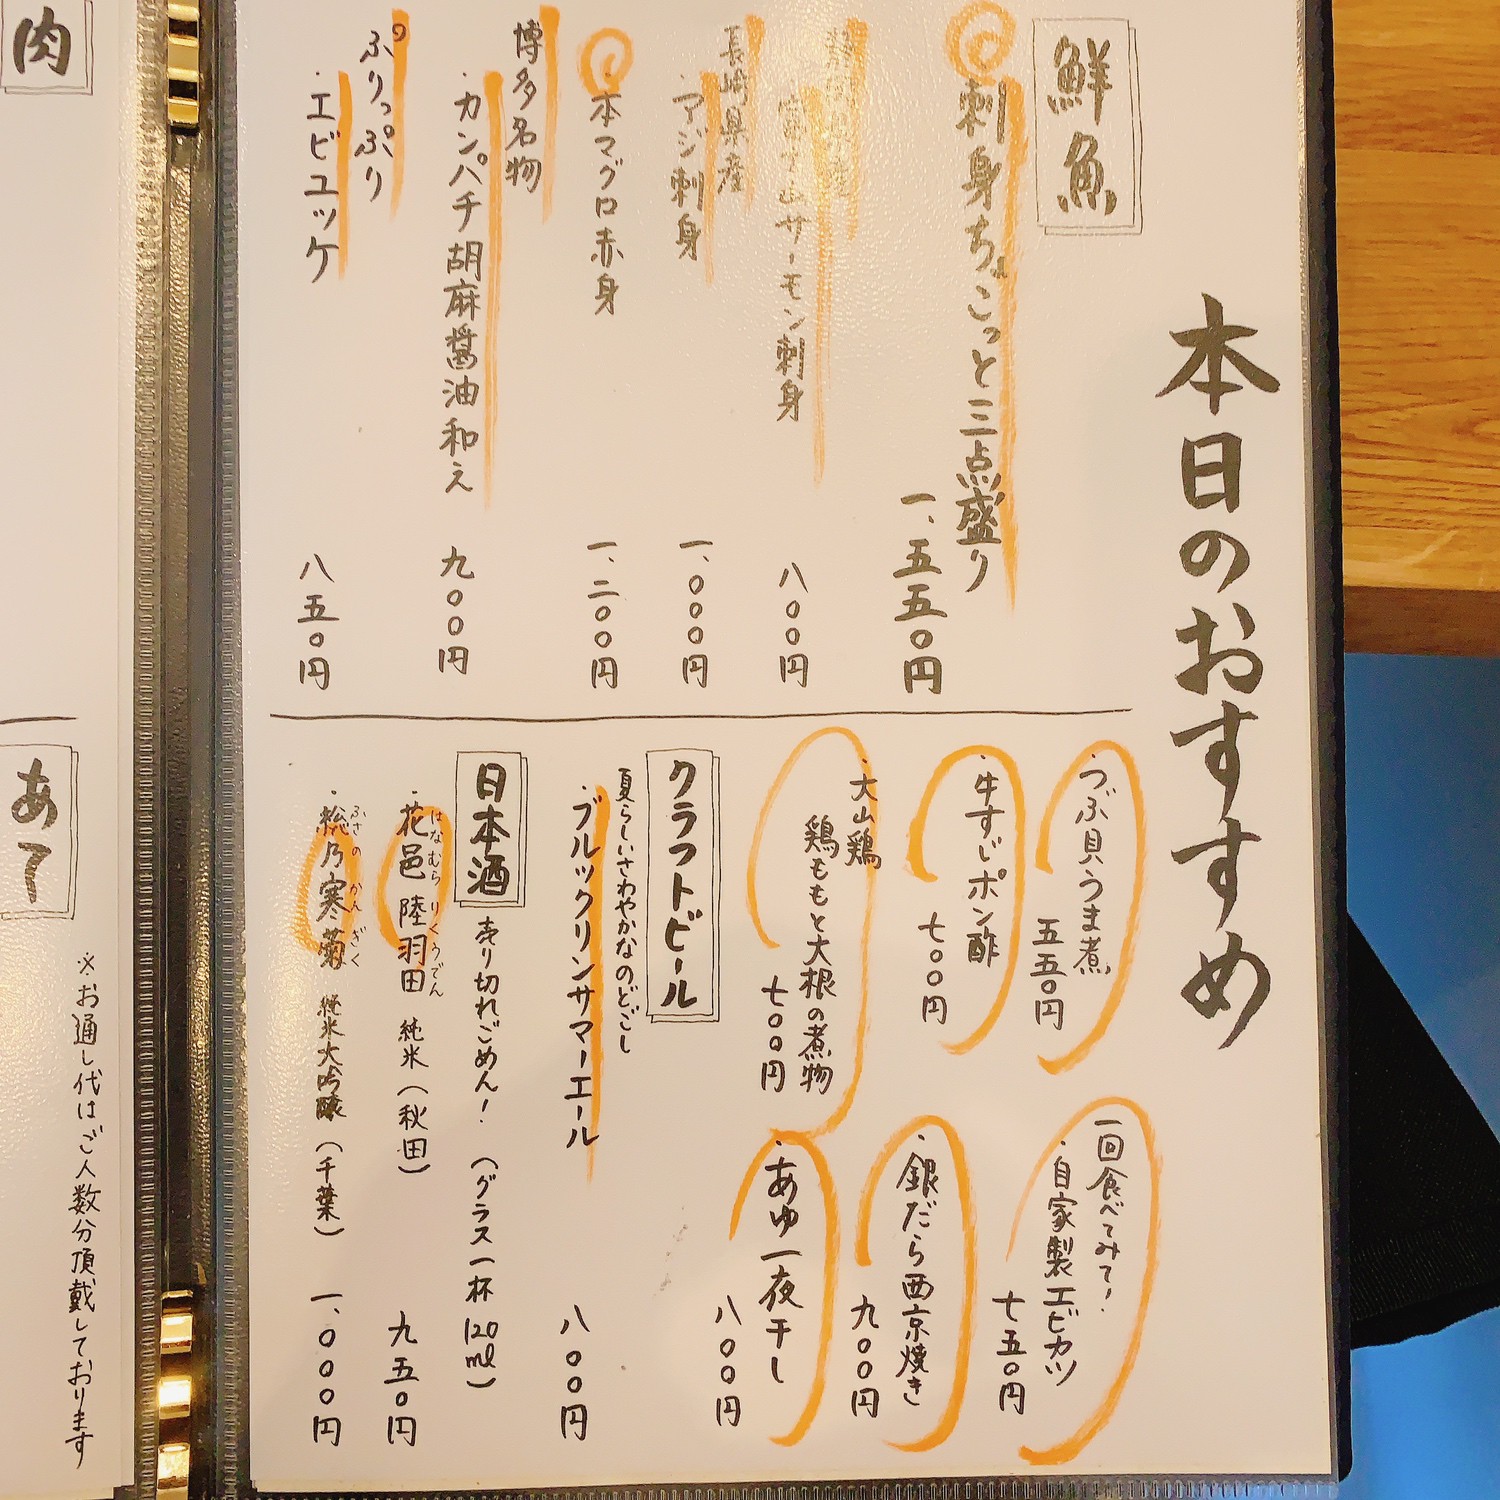 本日のおすすめ
鮮魚
刺身ちょこっと三点盛り
一、五五〇円
富士山サーモン刺身
八〇〇円
長崎県産
・アジ刺身
一、〇〇〇円
・本マグロ赤身
一、二〇〇円
博多名物
・カンパチ胡麻醤油和え
九〇〇円
ぷりっぷり
・エビユッケ
八五〇円
・つぶ貝うま煮
五五〇円
・牛すじポン酢
七〇〇円
・大山鶏
鶏ももと大根の煮物
七〇〇円
一回食べてみて!
・自家製エビカツ
七五〇円
・銀だら西京焼き
九〇〇円
・あゆ一夜干し
八〇〇円
クラフトビール
夏らしいさわやかなのどごし
・ブルックリンサマーエール
八〇〇円
日本酒 売り切れごめん! (グラス一杯 120ml)
はなむら りくうでん
・花邑 陸羽田 純米(秋田)
九五〇円
ふさの かんぎく
・総乃寒菊 純米大吟醸(千葉)
一、〇〇〇円
肉
あて
※お通し代はご人数分頂戴しております